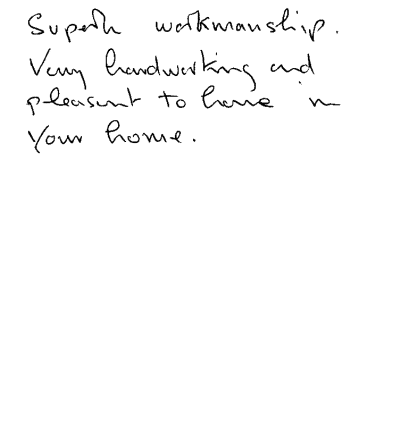 Superb workmanship.
Very hardworking and
pleasant to have in
your home.